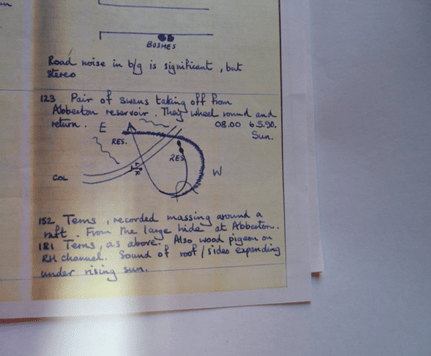 BUSHES
Road noise in b/g is significant, but
stereo
123 Pair of swans taking off from
Abberton reservoir. They wheel round and
return. 08.00 6.5.90.
Sun.
E
RES.
RES
W
COL
152 Terns, recorded massing around a
raft. From the large hide at Abberton.
181 Terns, as above. Also wood pigeon on
RH channel. Sound of roof/sides expanding
under rising sun.